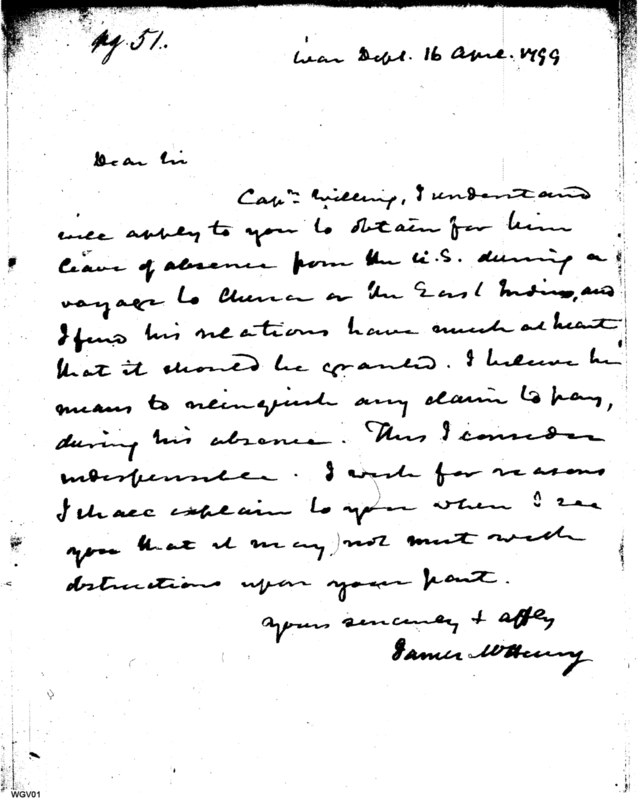 pg. 51.
War Dept. 16 April. 1799
Dear Sir
Capn. Willing, I understand
will apply to you to obtain for him
leave of absence from the U.S. during a
voyage to China or the East Indies, and
I find his relations have much at heart
that it should be granted. I believe he
means to relinquish any claim to pay,
during his absence. This I consider
indispensible. I wish for reasons
I shall explain to you when I see
you that it may not meet with
obstructions upon your part.
Yours sincerely & affly
James McHenry
WGV01